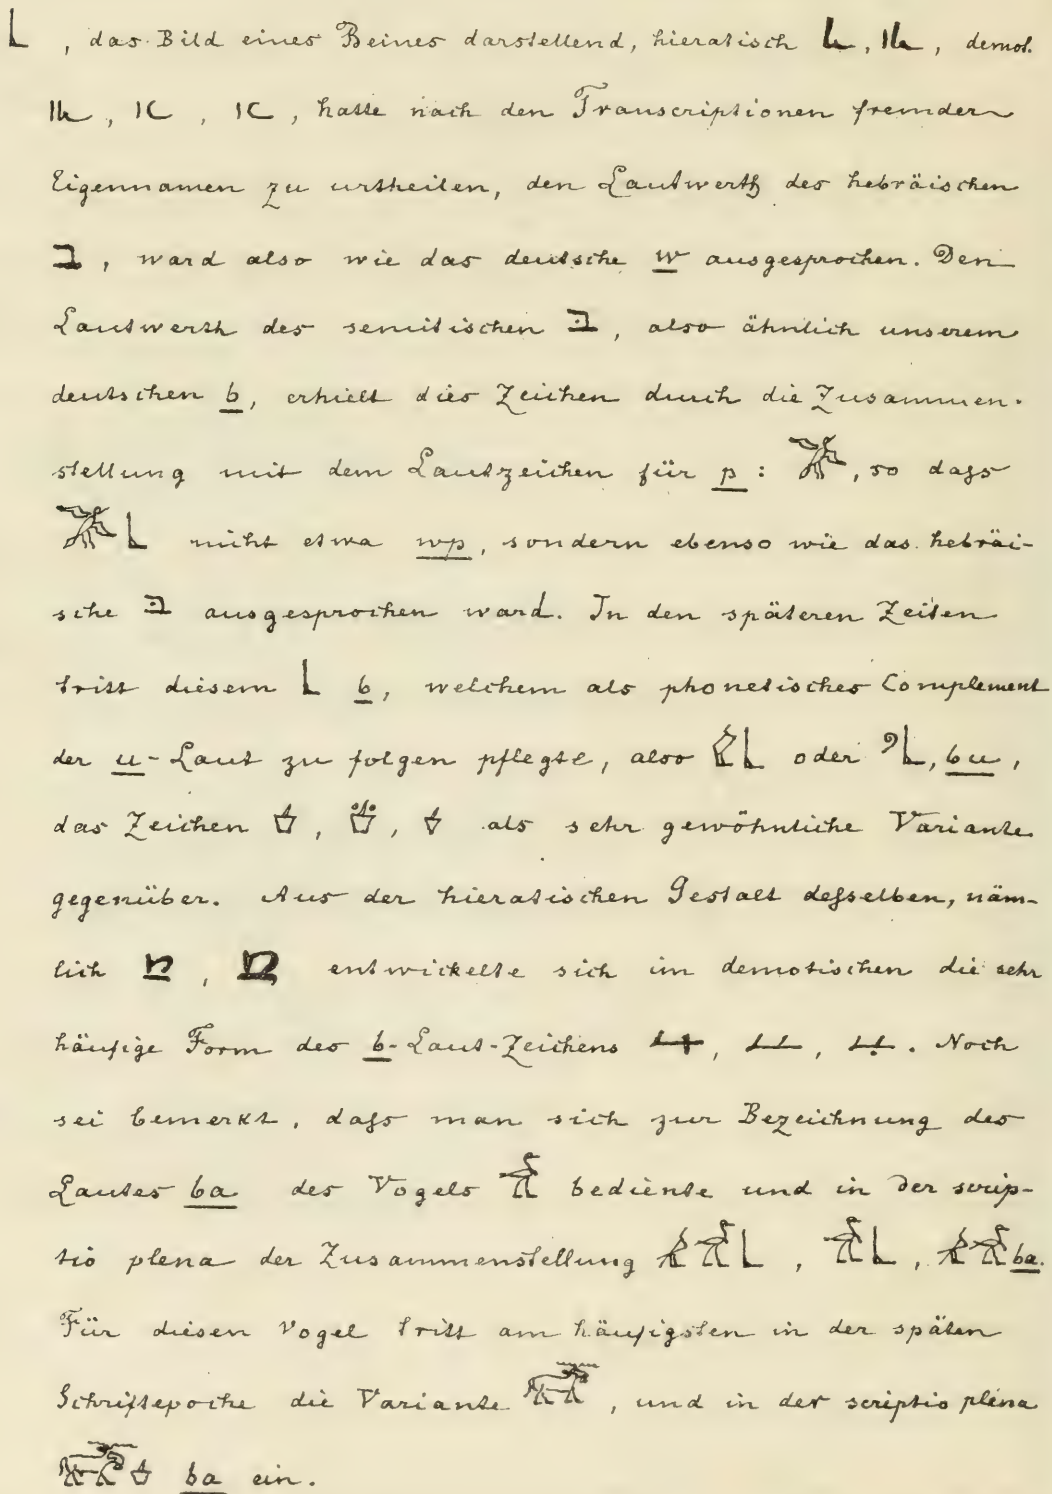 𓃀, das Bild eines Beines darstellend, hieratisch , , demot.
, , , hatte nach den Transcriptionen fremder
Eigennamen zu urtheilen, den Lautwerth des hebräischen
ב, ward also wie das deutsche w ausgesprochen. Den
Lautwerth des semitischen בּ, also ähnlich unserem
deutschen b, erhielt dies Zeichen durch die Zusammen-
stellung mit dem Lautzeichen für p: 𓅮, so daſs
𓅮𓃀 nicht etwa wp, sondern ebenso wie das hebräi-
sche בּ ausgesprochen ward. In den späteren Zeiten
tritt diesem 𓃀 b, welchem als phonetisches Complement
der u-Laut zu folgen pflegte, also 𓅱𓃀 oder 𓏲𓃀, bu,
das Zeichen , , als sehr gewöhnliche Variante
gegenüber. Aus der hieratischen Gestalt deſselben, näm-
lich , entwickelte sich im demotischen die sehr
häufige Form des b-Laut-Zeichens , , . Noch
sei bemerkt, daſs man sich zur Bezeichnung des
Lautes ba des Vogels 𓅡 bediente und in der scrip-
tio plena der Zusammenstellung 𓄿𓅡𓃀, 𓅡𓃀, 𓄿𓅡 ba.
Für diesen Vogel tritt am häufigsten in der späten
Schriftepoche die Variante 𓃝, und in der scriptio plena
𓃝 ba ein.